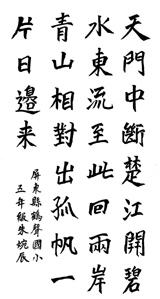 天門中斷楚江開碧
水東流至此回兩岸
青山相對出孤帆一
片日邊来
屏東縣鶴聲國小
五年級朱婉辰